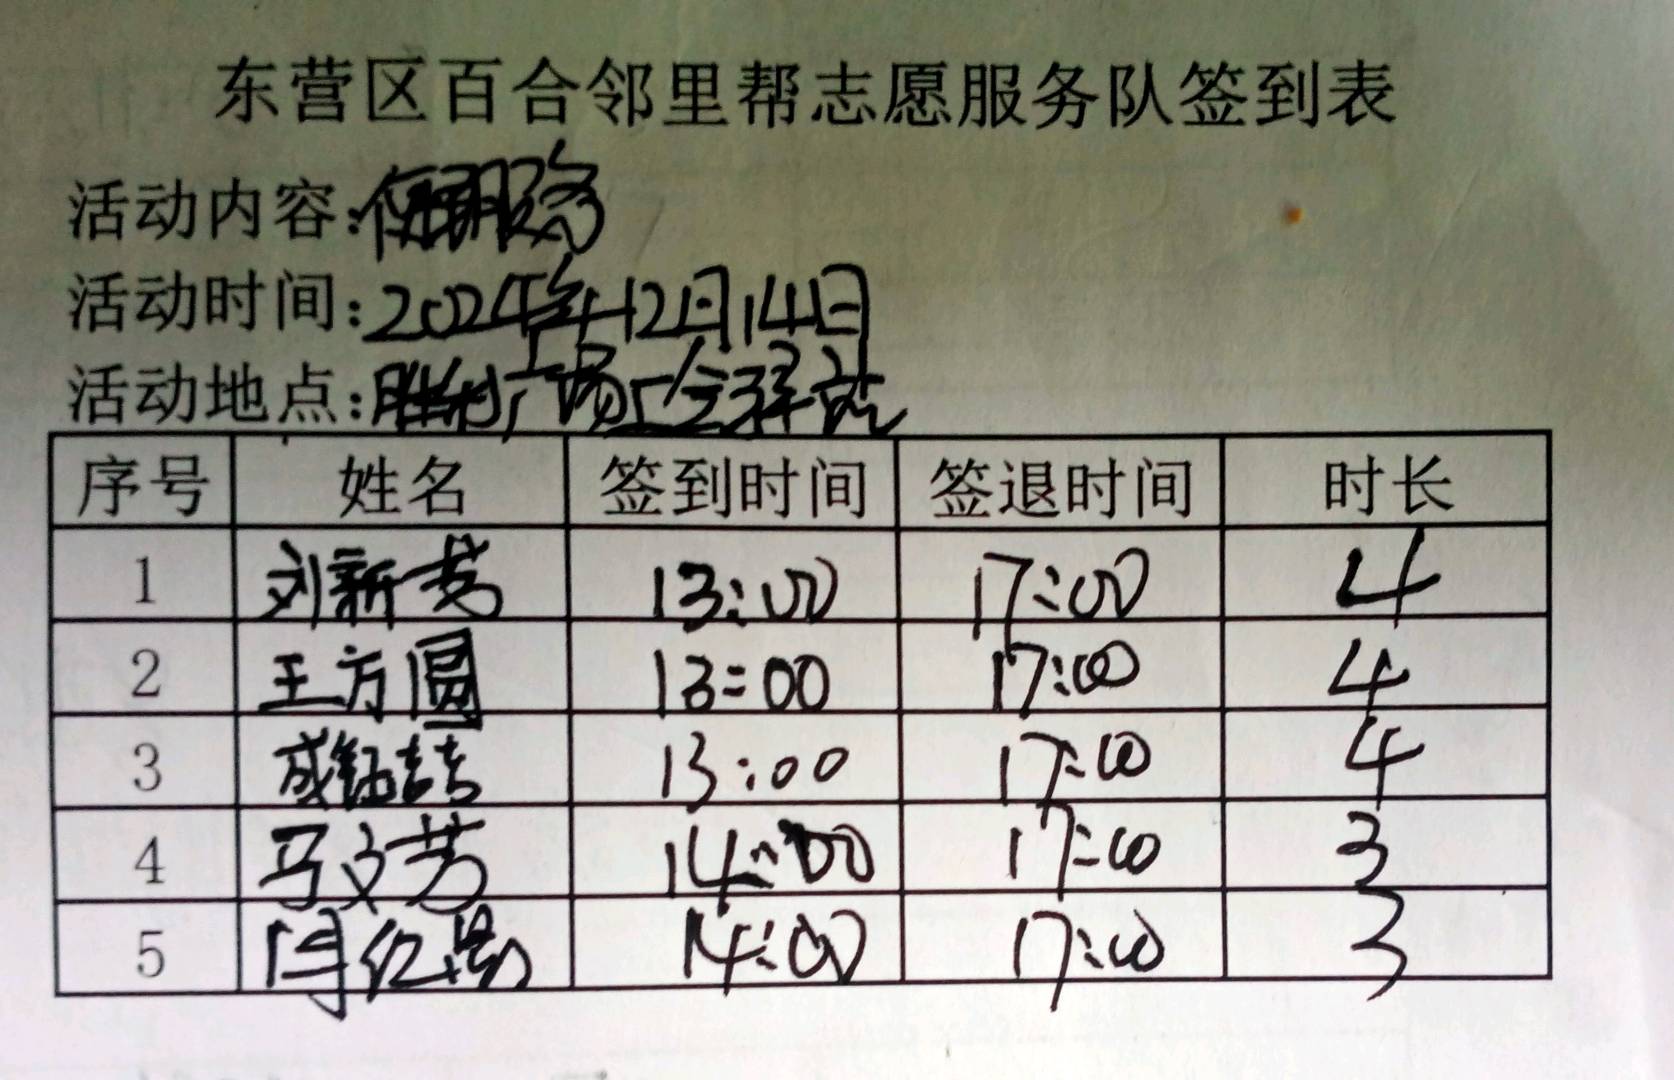 东营区百合邻里帮志愿服务队签到表
活动内容:便民服务
活动时间:2024年12月14日
活动地点:胜利广场工会驿站
序号 姓名 签到时间 签退时间 时长
1 刘新芳 13:00 17:00 4
2 王方圆 13:00 17:00 4
3 成 13:00 17:00 4
4 马文芳 14:00 17:00 3
5 闫红 14:00 17:00 3